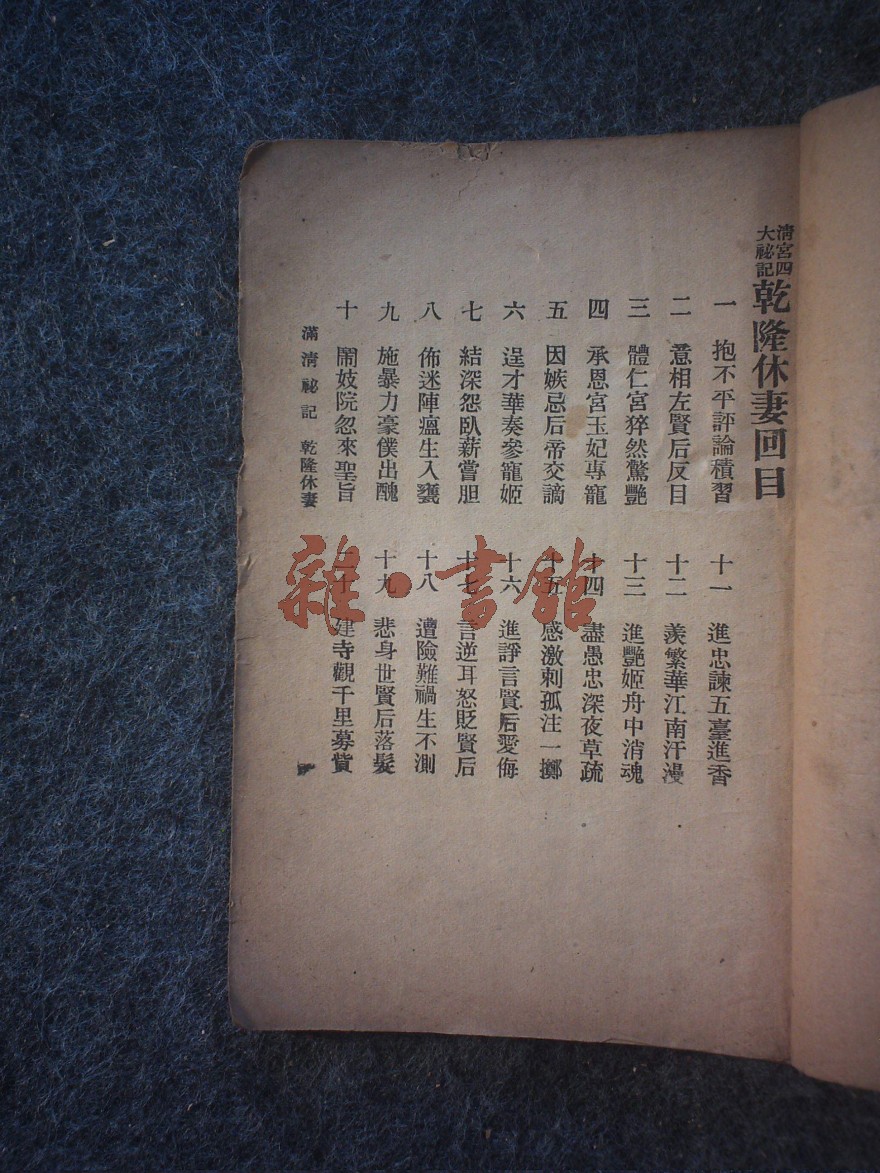 清宮四大祕記
乾隆休妻回目
一 抱不平評論積習
二 意相左賢后反目
三 體仁宮猝然驚艷
四 承恩宮玉妃專寵
五 因嫉忌后帝交謫
六 逞才華奏參寵姬
七 結深怨臥薪嘗胆
八 佈迷陣瘟生入甕
九 施暴力豪僕出醜
十 鬧妓院忽來聖旨
十一 進忠諫五臺進香
十二 羨繁華江南汗漫
十三 進艷姬舟中消魂
十四 盡愚忠深夜草疏
十五 感激刺孤注一擲
十六 進諍言賢后愛侮
十七 言逆耳怒貶賢后
十八 遭險難禍生不測
十九 悲身世賢后落髮
二十 建寺觀千里募貲
滿清祕記 乾隆休妻
雜·書館